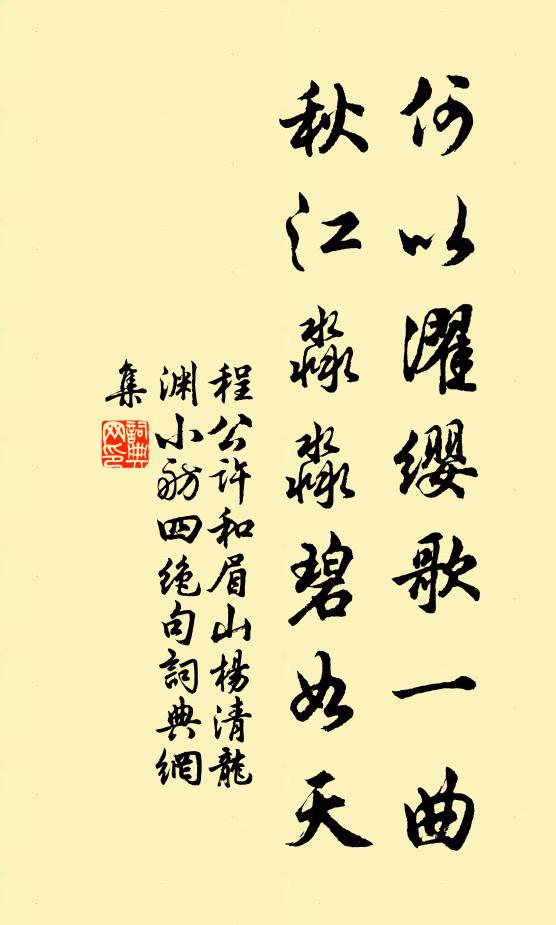 何以濯缨歌一曲
秋江淼淼碧如天
程公许和眉山楊清龍
渊小舫四绝句詞典網
集
詞典
网印